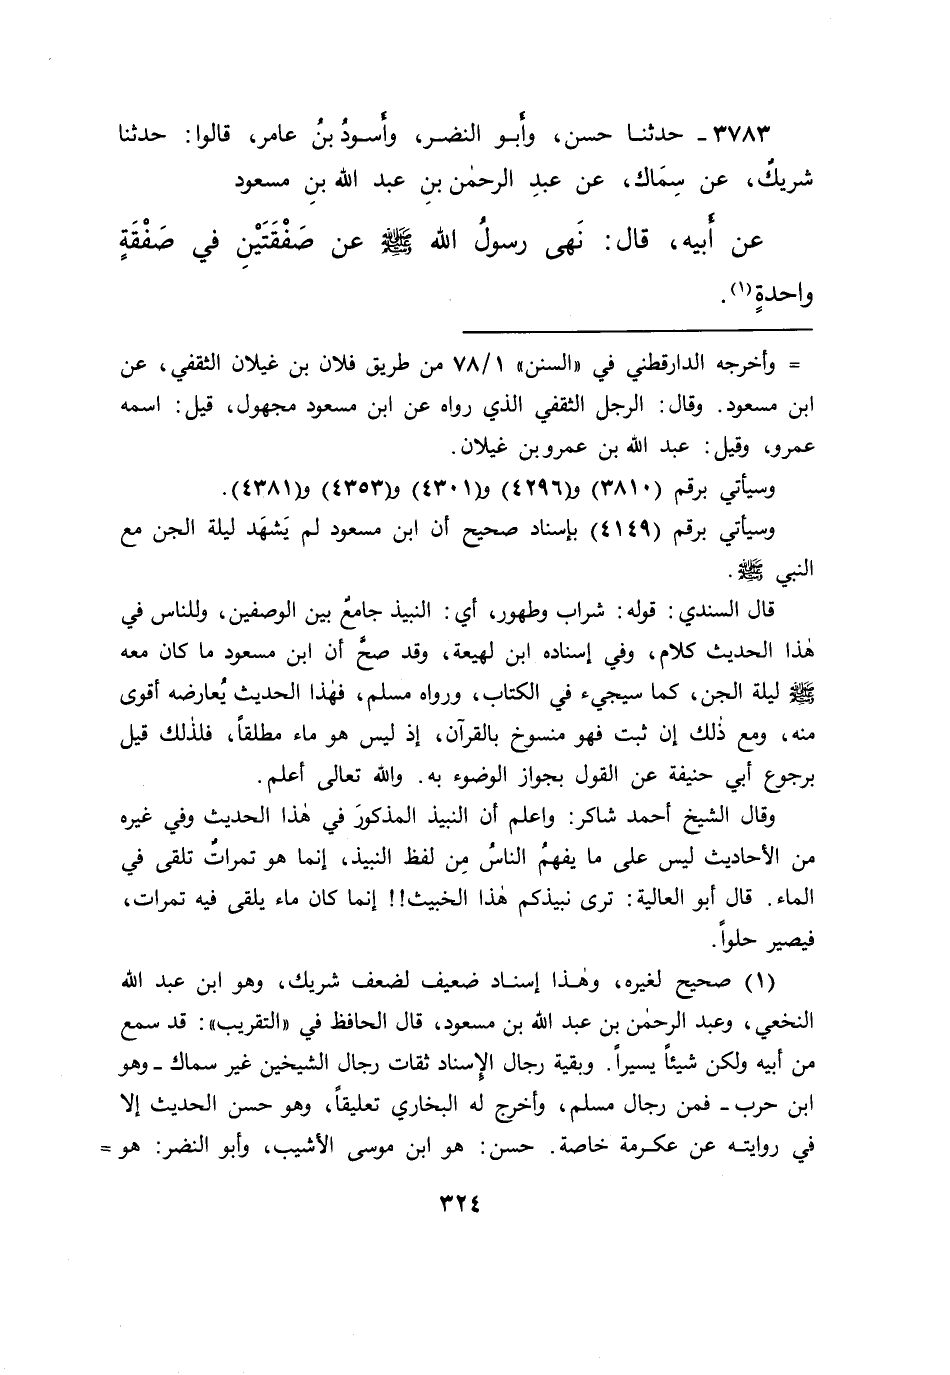 ٣٧٨٣ - حدثنا حسن، وأَبو النضر، وأَسودُ بنُ عامر، قالوا: حدثنا
شريكٌ، عن سِمَاك، عن عبدِ الرحمٰن بنِ عبد الله بنِ مسعود
عن أَبيه، قال: نَهى رسولُ الله ﷺ عن صَفْقَتَيْنِ في صَفْقَةٍ
واحدةٍ(١).
= وأخرجه الدارقطني في «السنن» ٧٨/١ من طريق فلان بن غيلان الثقفي، عن
ابن مسعود. وقال: الرجل الثقفي الذي رواه عن ابن مسعود مجهول، قيل: اسمه
عمرو، وقيل: عبد الله بن عمرو بن غيلان.
وسيأتي برقم (٣٨١٠) و(٤٢٩٦) و(٤٣٠١) و(٤٣٥٣) و(٤٣٨١).
وسيأتي برقم (٤١٤٩) بإسناد صحيح أن ابن مسعود لم يَشهَد ليلة الجن مع
النبي ﷺ.
قال السندي: قوله: شراب وطهور، أي: النبيذ جامعٌ بين الوصفين، وللناس في
هٰذا الحديث كلام، وفي إسناده ابن لهيعة، وقد صحَّ أن ابن مسعود ما كان معه
ﷺ ليلة الجن، كما سيجيء في الكتاب، ورواه مسلم، فهٰذا الحديث يُعارضه أقوى
منه، ومع ذٰلك إن ثبت فهو منسوخ بالقرآن، إذ ليس هو ماء مطلقاً، فلذٰلك قيل
برجوع أبي حنيفة عن القول بجواز الوضوء به. والله تعالى أعلم.
وقال الشيخ أحمد شاكر: واعلم أن النبيذ المذكورَ في هٰذا الحديث وفي غيره
من الأحاديث ليس على ما يفهمُ الناسُ مِن لفظ النبيذ، إنما هو تمراتٌ تلقى في
الماء. قال أبو العالية: ترى نبيذكم هٰذا الخبيث!! إنما كان ماء يلقى فيه تمرات،
فيصير حلواً.
(١) صحيح لغيره، وهٰذا إسناد ضعيف لضعف شريك، وهو ابن عبد الله
النخعي، وعبد الرحمٰن بن عبد الله بن مسعود، قال الحافظ في «التقريب»: قد سمع
من أبيه ولكن شيئاً يسيراً. وبقية رجال الإسناد ثقات رجال الشيخين غير سماك - وهو
ابن حرب - فمن رجال مسلم، وأخرج له البخاري تعليقاً، وهو حسن الحديث إلا
في روايته عن عكرمة خاصة. حسن: هو ابن موسى الأشيب، وأبو النضر: هو =
٣٢٤